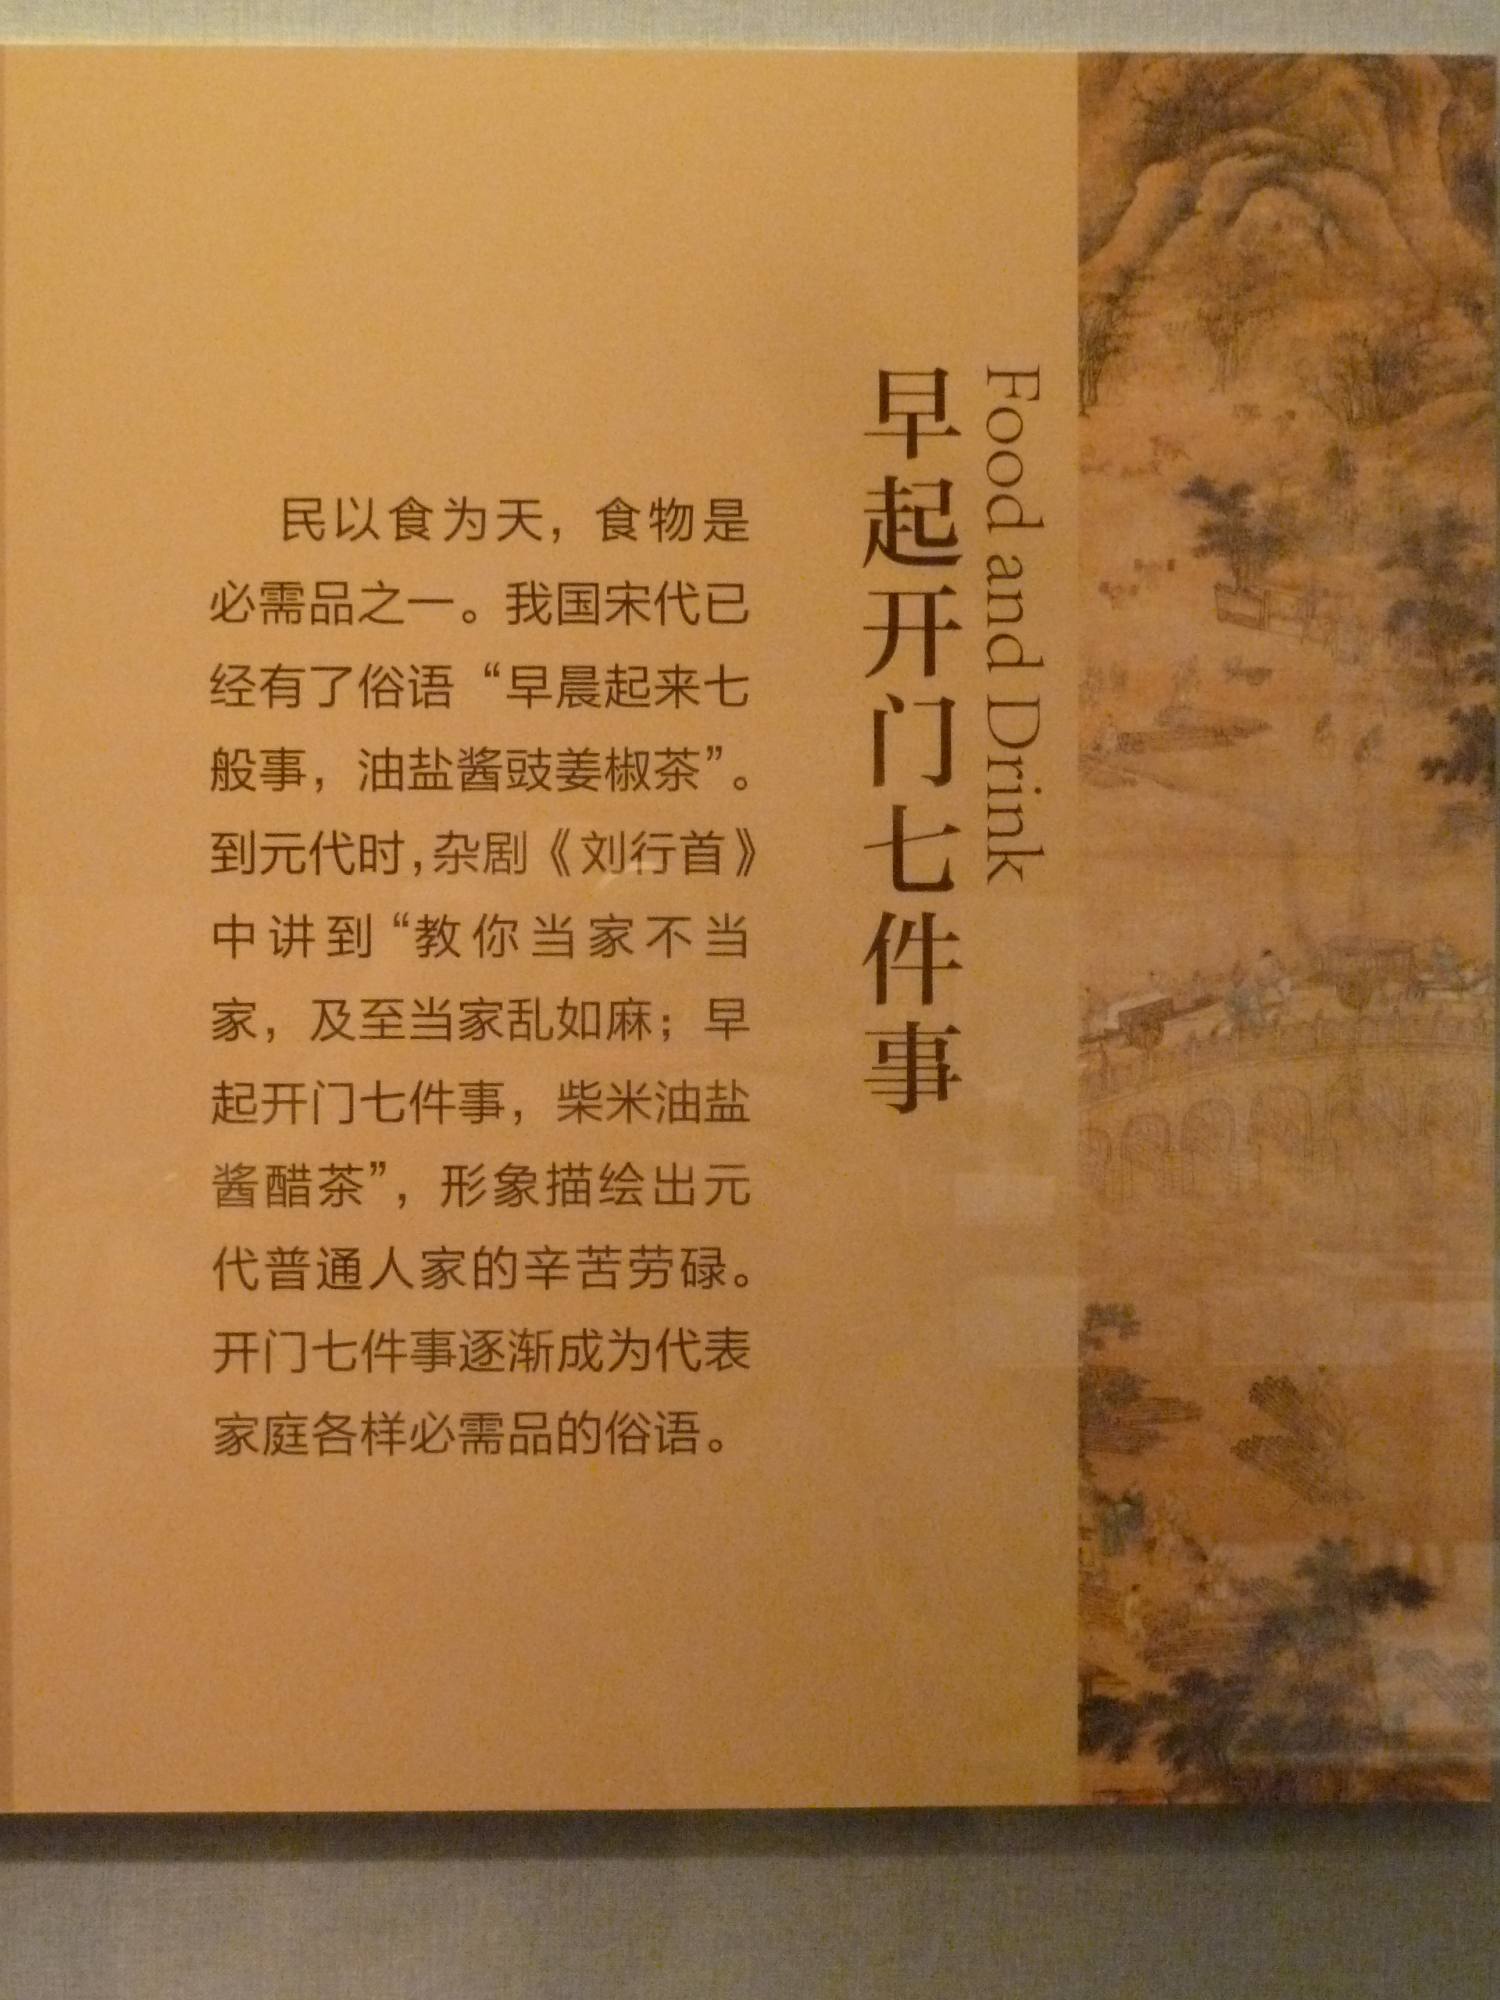 早起开门七件事
Food and Drink
民以食为天，食物是
必需品之一。我国宋代已
经有了俗语“早晨起来七
般事，油盐酱豉姜椒茶”。
到元代时，杂剧《刘行首》
中讲到“教你当家不当
家，及至当家乱如麻；早
起开门七件事，柴米油盐
酱醋茶”，形象描绘出元
代普通人家的辛苦劳碌。
开门七件事逐渐成为代表
家庭各样必需品的俗语。